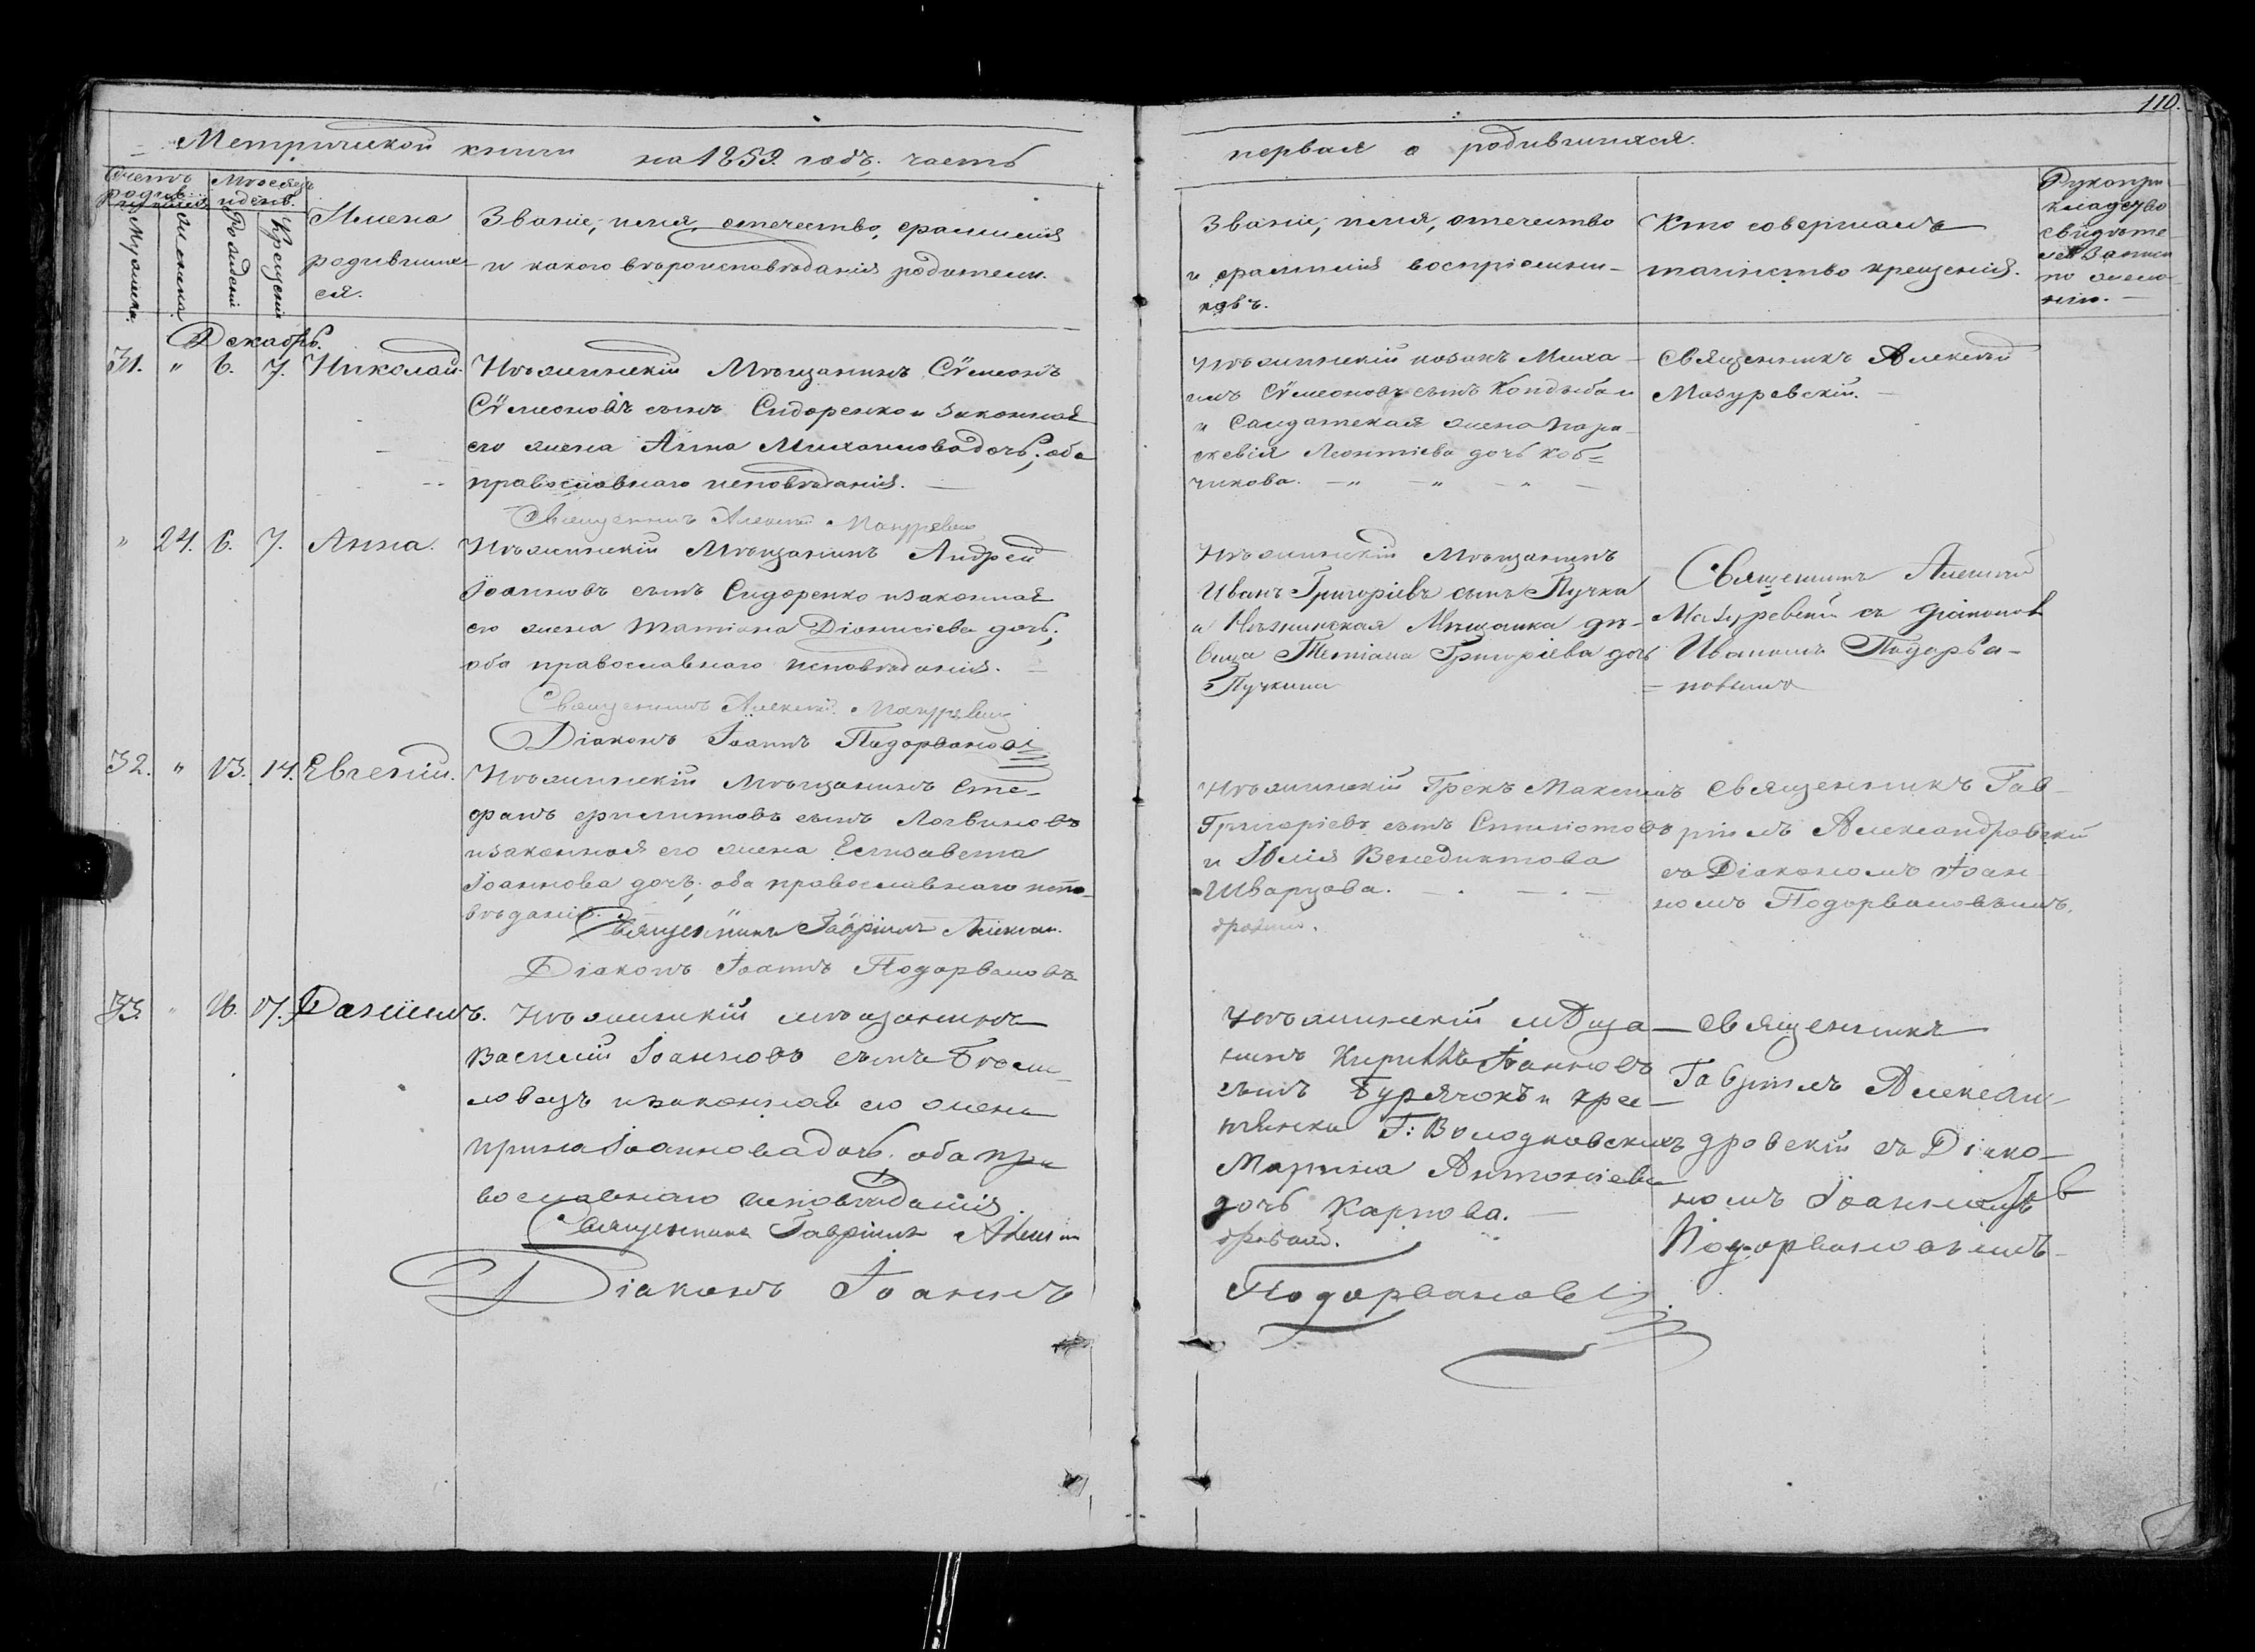 110.
Метрической книги на 1859. годъ; часть
первая о родившихся.
Счетъ родившихся
Мѣсяцъ и день.
Мужеска.
Женска.
Рожденія
Крещенія
Имена
родивших-
ся.
Званіе, имя, отечество, фамилія
и какого вѣроисповѣданія родители.
Званіе, имя, отечество
и фамилія воспріемни-
ковъ.
Кто совершалъ
таинство крещенія.
Рукопри-
кладство
свидѣте-
лей записи
по жела-
нію.
Декабрь.
31. " 6. 7. Николай.
Нѣжинскій Мѣщанинъ Сѵмеонъ
Сѵмеоновъ сынъ Сидоренко и законная
его жена Анна Михаилова дочь; оба
православнаго исповѣданія.
Священникъ Алексій Мазуревскій
Нѣжинскій козакъ Миха-
илъ Сѵмеоновъ сынъ Кондыбал
и Салдатская жена Пара-
скевія Леонтіева дочь Коб=
чикова.
Священникъ Алексѣй
Мазуревскій.
" 24. 6. 7. Анна.
Нѣжинскій Мѣщанинъ Андрей
Іоанновъ сынъ Сидоренко и законная
его жена Татіана Діонисіева дочь;
оба православнаго исповѣданія.
Священникъ Алексій Мазуревскій
Діаконъ Іоаннъ Подорвановъ
Нѣжинскій Мѣщанинъ
Иванъ Григоріевъ сынъ Пучка
и Нѣжинская Мѣщанка дѣ-
вица Татіана Григоріева дочь
Пучкина
Священникъ Алексѣй
Мазуревскій съ діакономъ
Иваномъ Подорва-
новымъ
32. " 13. 14. Евгеній.
Нѣжинскій Мѣщанинъ Сте-
фанъ Филипповъ сынъ Логвиновъ
и законная его жена Елисавета
Іоаннова дочь; оба православнаго испо-
вѣданія.
Священникъ Гавріилъ Алексан-
дровскій.
Діаконъ Іоаннъ Подорвановъ
Нѣжинскій Грекъ Максимъ
Григоріевъ сынъ Спилиотовъ
и Юлія Венедиктова
Шварцова.
Священникъ Гав-
ріилъ Александровскій
съ Діакономъ Іоан-
номъ Подорвановымъ.
33. " 16. 17. Даніилъ.
Нѣжинскій мѣщанинъ
Василій Іоанновъ сынъ
и законная его жена
Ирина Іоаннова дочь. оба пра
вославнаго исповѣданія
Священникъ Гавріилъ Алексан
дровскій.
Діаконъ Іоаннъ Подорвановъ
Нѣжинскій мѣща-
нинъ Кириллъ Іоанновъ
сынъ Бурячокъ и крес-
тьянка Г: Володковскихъ
Марина Антоніева
дочь Карпова.
Священникъ
Гавріилъ Алексан-
дровскій съ Діако-
номъ Іоанномъ
Подорвановымъ